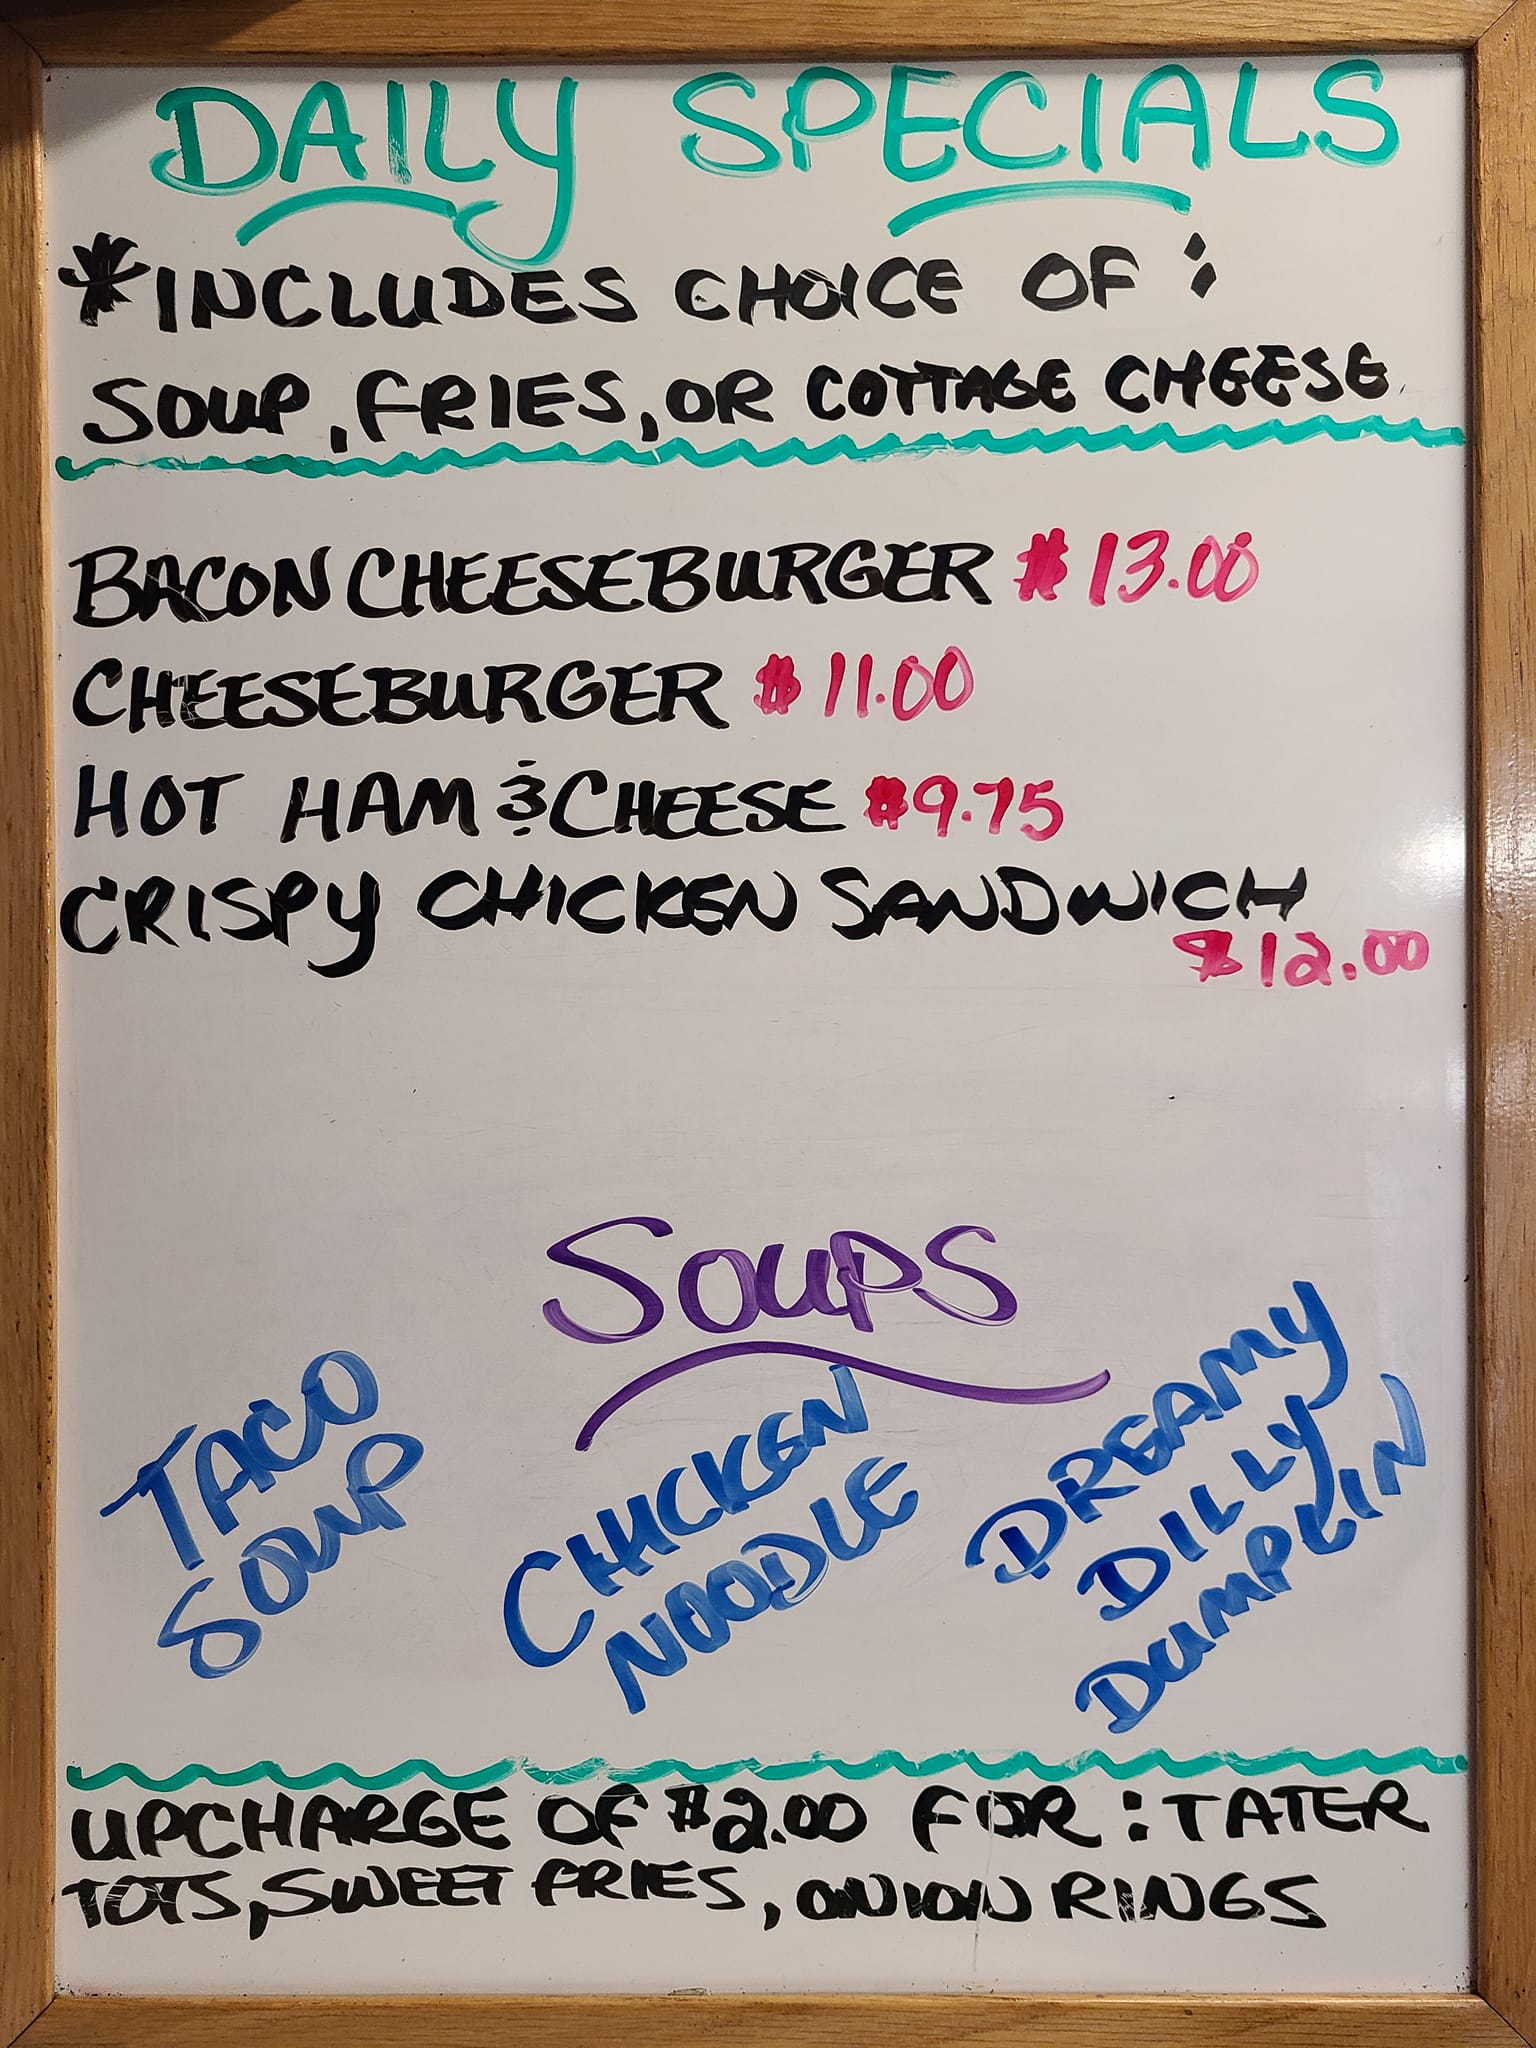 DAILY SPECIALS
*INCLUDES CHOICE OF :
SOUP, FRIES, OR COTTAGE CHEESE
BACON CHEESEBURGER $13.00
CHEESEBURGER $11.00
HOT HAM & CHEESE $9.75
CRISPY CHICKEN SANDWICH
$12.00
SOUPS
TACO
SOUP
CHICKEN
NOODLE
DREAMY
DILLY
DUMPLIN
UPCHARGE OF $2.00 FOR : TATER
TOTS, SWEET FRIES, ONION RINGS